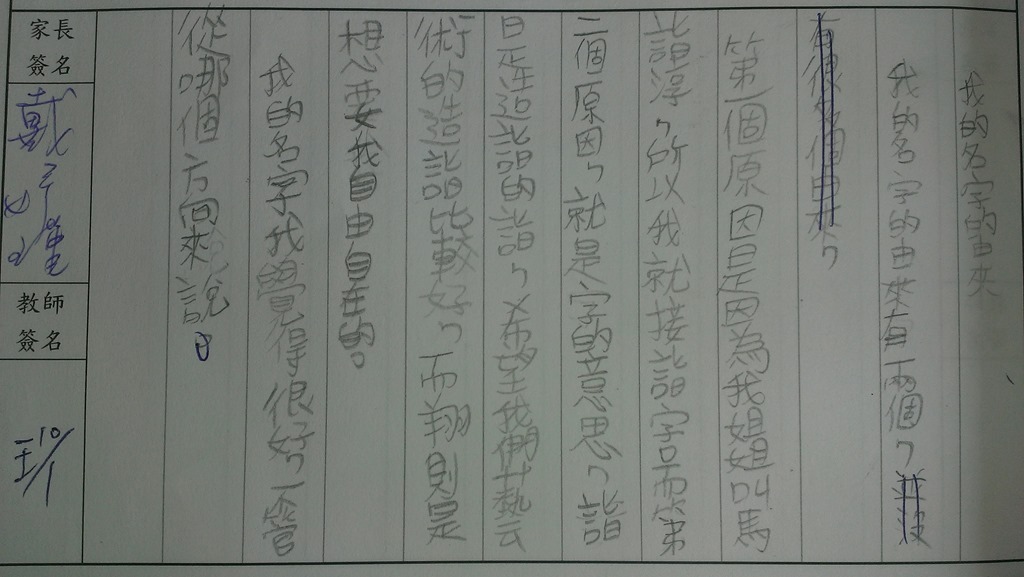 我的名字的由來
我的名字的由來有兩個，並沒
有很多個由來，
第一個原因是因為我姐姐叫馬
詣淳，所以我就接詣字。而第
二個原因，就是字的意思，詣
是造詣的詣，希望我們在藝
術的造詣比較好，而翔則是
想要我自由自在的。
我的名字我覺得很好，不管
從哪個方向來說。
家長
簽名
教師
簽名
10/1